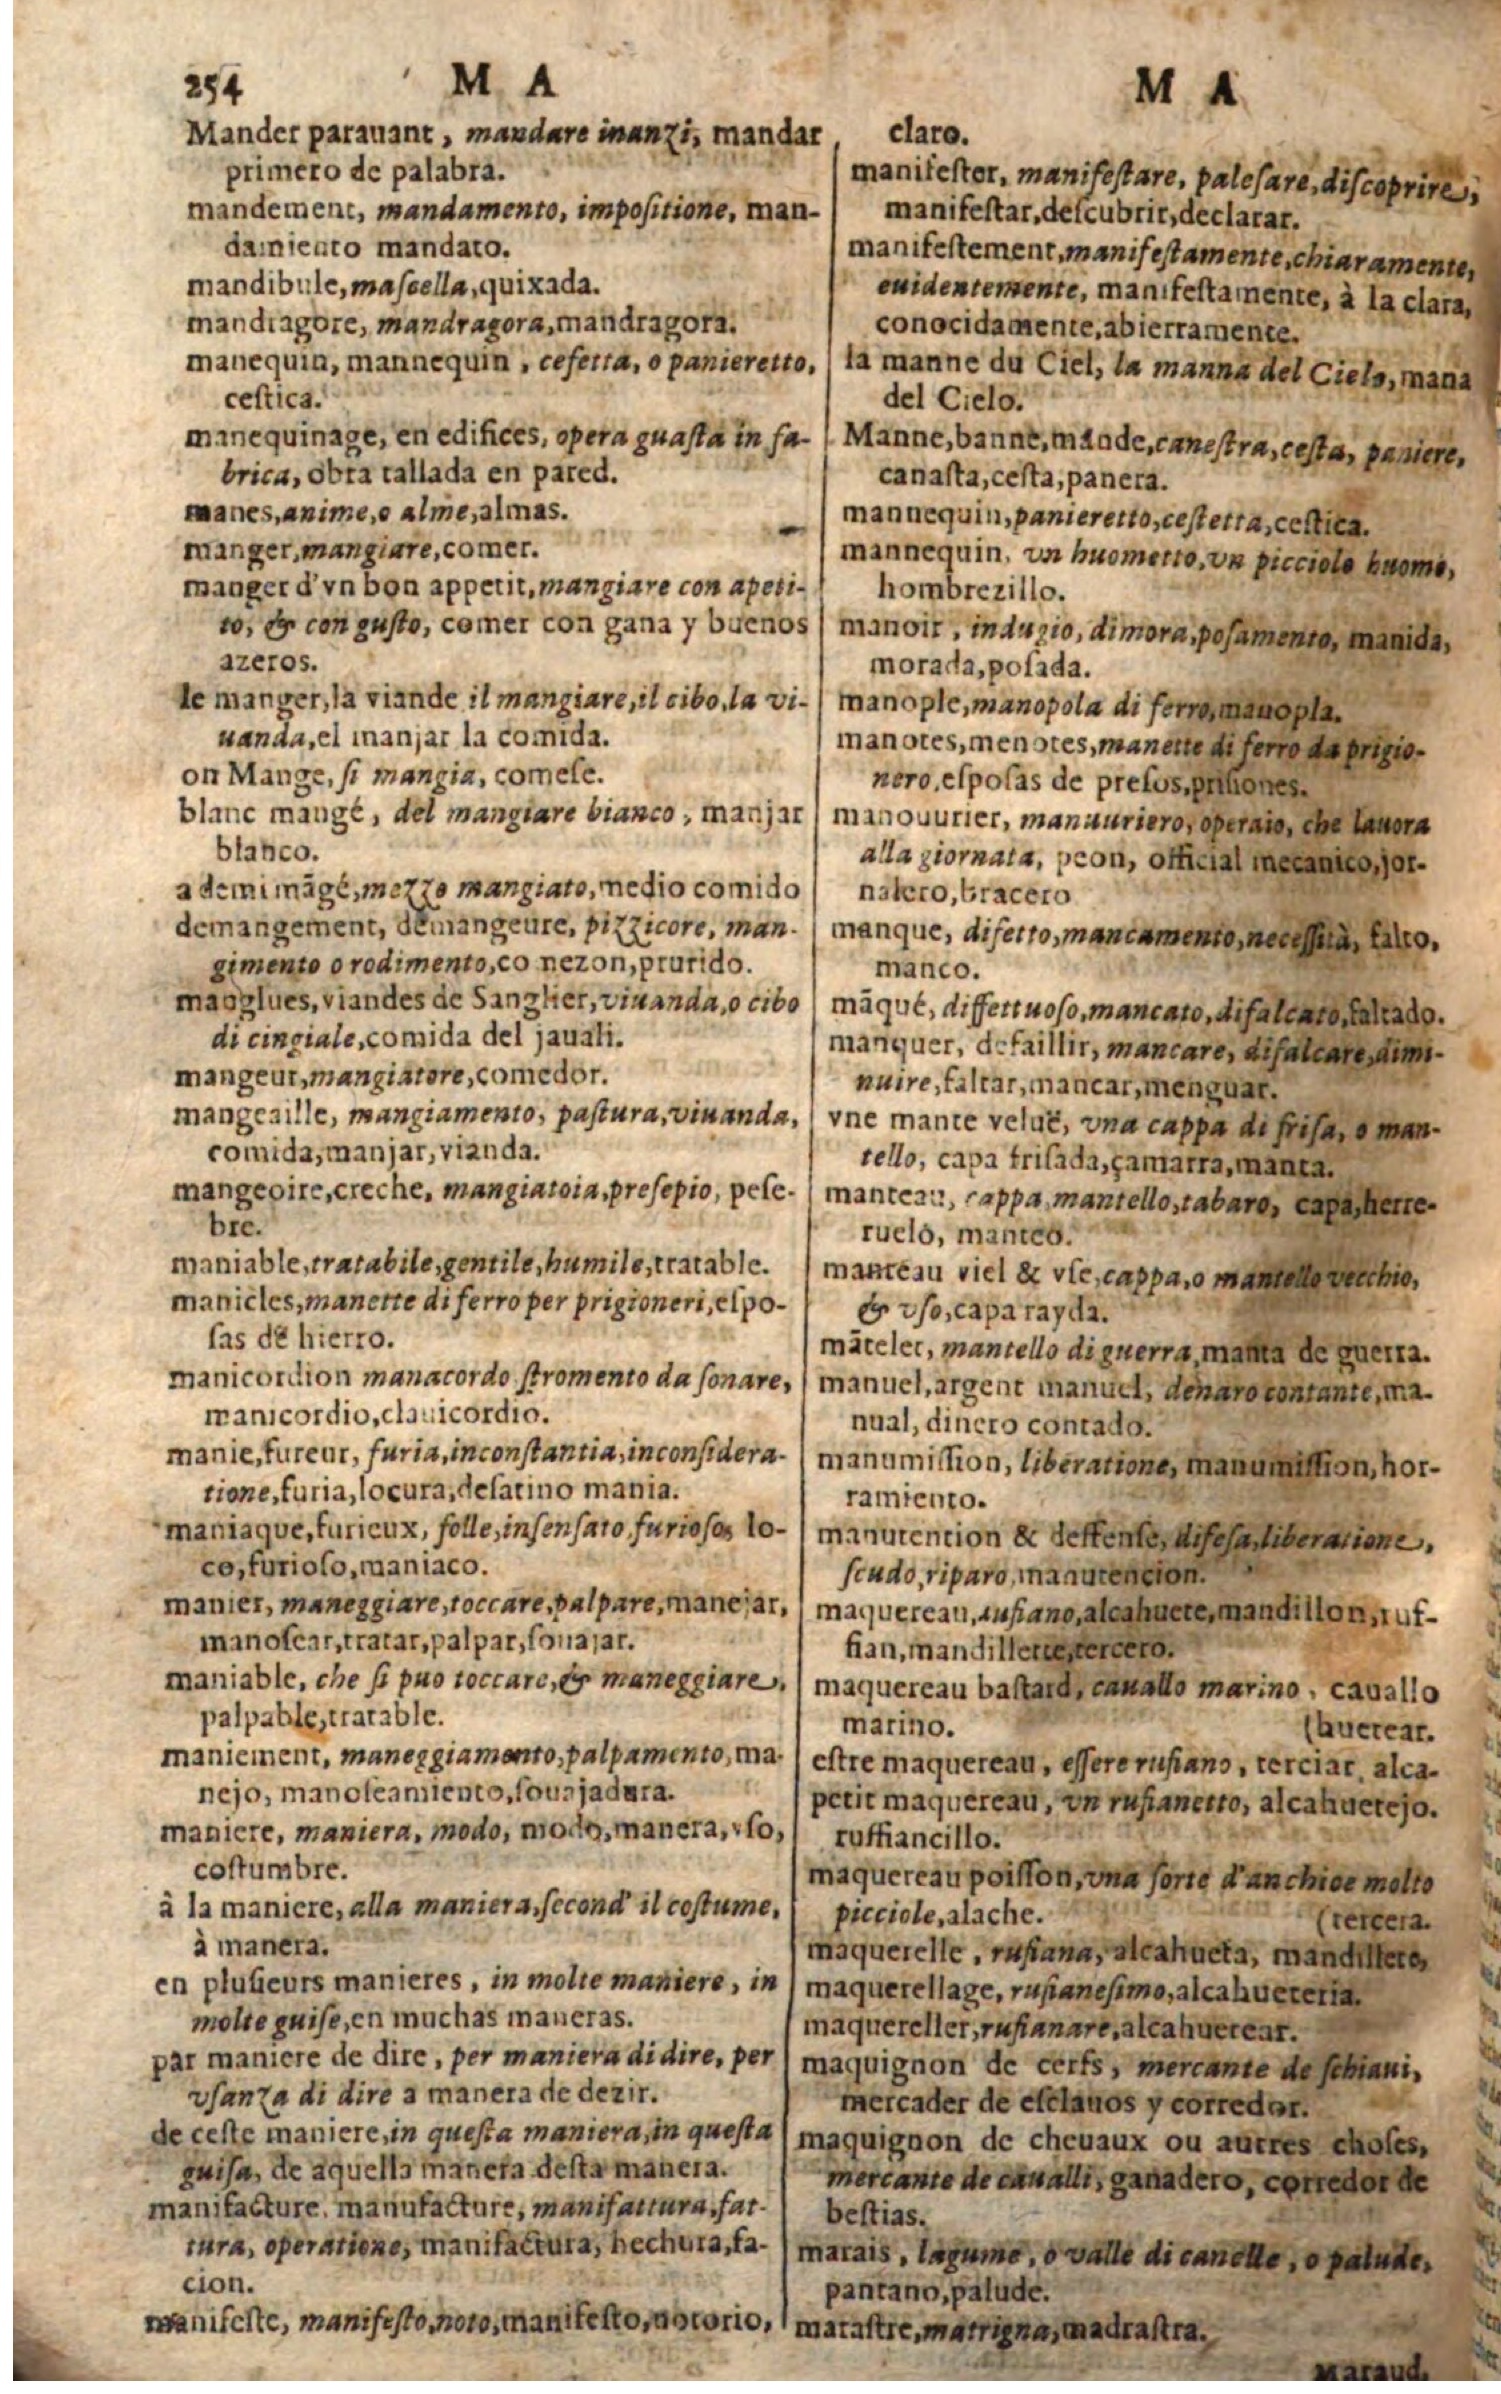 254 M A
Mander parauant, mandare inanzi, mandar
primero de palabra.
mandement, mandamento, impositione, man-
damiento mandato.
mandibule, mascella, quixada.
mandragore, mandragora, mandragora.
manequin, mannequin, cesetta, o panieretto,
cestica.
manequinage, en edifices, opera guasta in fa-
brica, obra tallada en pared.
manes, anime, o alme, almas.
manger, mangiare, comer.
manger d'vn bon appetit, mangiare con apeti-
to, & con gusto, comer con gana y buenos
azeros.
le manger, la viande il mangiare, il cibo, la vi-
uanda, el manjar la comida.
on Mange, si mangia, comese.
blanc mangé, del mangiare bianco, manjar
blanco.
a demi māgé, mezzo mangiato, medio comido
demangement, demangeure, pizzicore, man-
gimento o rodimento, co nezon, prurido.
manglues, viandes de Sanglier, viuanda, o cibo
di cingiale, comida del jauali.
mangeur, mangiatore, comedor.
mangeaille, mangiamento, pastura, viuanda,
comida, manjar, vianda.
mangeoire, creche, mangiatoia, presepio, pese-
bre.
maniable, tratabile, gentile, humile, tratable.
manicles, manette di ferro per prigioneri, espo-
sas de hierro.
manicordion manacordo stromento da sonare,
manicordio, clauicordio.
manie, fureur, furia, inconstantia, inconsidera-
tione, furia, locura, desatino mania.
maniaque, furieux, folle, insensato, furioso, lo-
co, furioso, maniaco.
manier, maneggiare, toccare, palpare, manejar,
manosear, tratar, palpar, souajar.
maniable, che si puo toccare, & maneggiare,
palpable, tratable.
maniement, maneggiamento, palpamento, ma-
nejo, manoseamiento, souajadura.
maniere, maniera, modo, modo, manera, vso,
costumbre.
â la maniere, alla maniera, second' il costume,
à manera.
en plusieurs manieres, in molte maniere, in
molte guise, en muchas maneras.
par maniere de dire, per maniera di dire, per
vsanza di dire a manera de dezir.
de ceste maniere, in questa maniera, in questa
guisa, de aquella manera desta manera.
manifacture, manufacture, manifattura, fat-
tura, operatione, manifactura, hechura, fa-
cion.
manifeste, manifesto, noto, manifesto, notorio,
M A
claro.
manifester, manifestare, palesare, discoprire,
manifestar, descubrir, declarar.
manifestement, manifestamente, chiaramente,
euidentemente, manifestamente, à la clara,
conocidamente, abierramente.
la manne du Ciel, la manna del Cielo, mana
del Cielo.
Manne, banne, mande, canestra, cesta, paniere,
canasta, cesta, panera.
mannequin, panieretto, cestetta, cestica.
mannequin, vn huometto, vn picciolo huomo,
hombrezillo.
manoir, indugio, dimora, posamento, manida,
morada, posada.
manople, manopola di ferro, manopla.
manotes, menotes, manette di ferro da prigio-
nero, esposas de presos, prisiones.
manouurier, manuuriero, operaio, che lauora
alla giornata, peon, official mecanico, jor-
nalero, bracero
manque, difetto, mancamento, necessità, falto,
manco.
māqué, diffettuoso, mancato, difalcato, faltado.
manquer, defaillir, mancare, difalcare, dimi-
nuire, faltar, mancar, menguar.
vne mante veluë, vna cappa di frisa, o man-
tello, capa frisada, çamarra, manta.
manteau, cappa, mantello, tabaro, capa, herre-
ruelo, manteo.
manteau viel & vse, cappa, o mantello vecchio,
& vso, capa rayda.
mātelet, mantello di guerra, manta de guerra.
manuel, argent manuel, denaro contante, ma-
nual, dinero contado.
manumission, liberatione, manumission, hor-
ramiento.
manutention & deffense, difesa, liberatione,
scudo, riparo, manutencion.
maquereau, rufiano, alcahuete, mandillon, ruf-
fian, mandillette, tercero.
maquereau bastard, cauallo marino, cauallo
marino. (huetear.
estre maquereau, essere rufiano, terciar, alca-
petit maquereau, vn rufianetto, alcahuetejo.
ruffiancillo.
maquereau poisson, vna sorte d'anchioe molto
picciole, alache. (tercera.
maquerelle, rufiana, alcahueta, mandillete,
maquerellage, rufianesimo, alcahueteria.
maquereller, rufianare, alcahuetear.
maquignon de cerfs, mercante de schiaui,
mercader de esclauos y corredor.
maquignon de cheuaux ou autres choses,
mercante de caualli, ganadero, corredor de
bestias.
marais, lagume, o valle di canelle, o palude,
pantano, palude.
marastre, matrigna, madrastra.
Maraud,